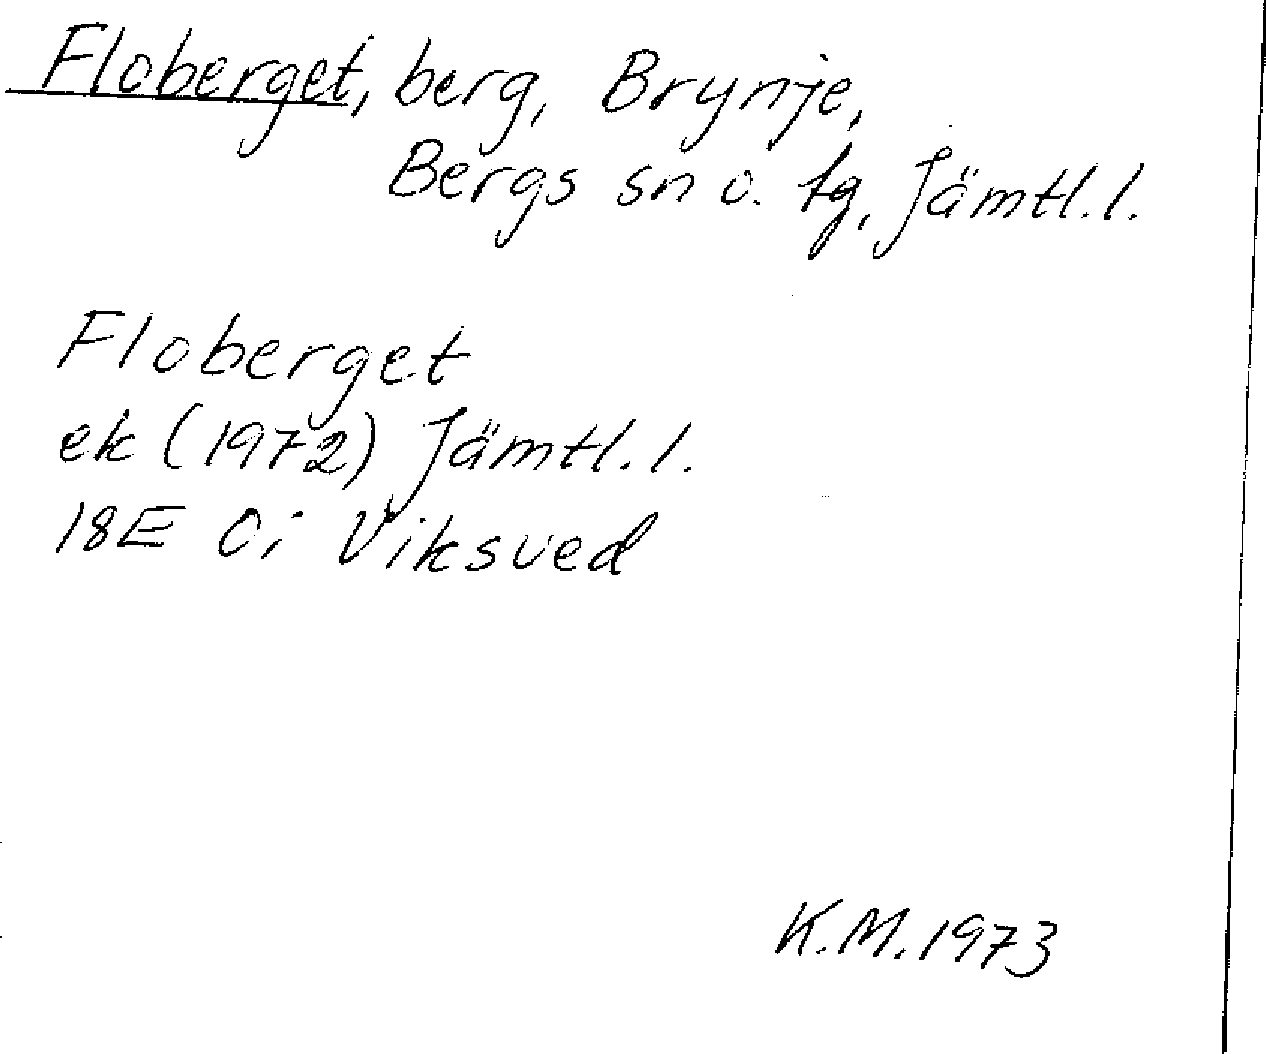 Floberget, berg, Brynje,
Bergs sn o. tg, Jämtl.l.
Floberget
ek (1972) Jämtl.l.
18E 0i Viksved
K.M.1973